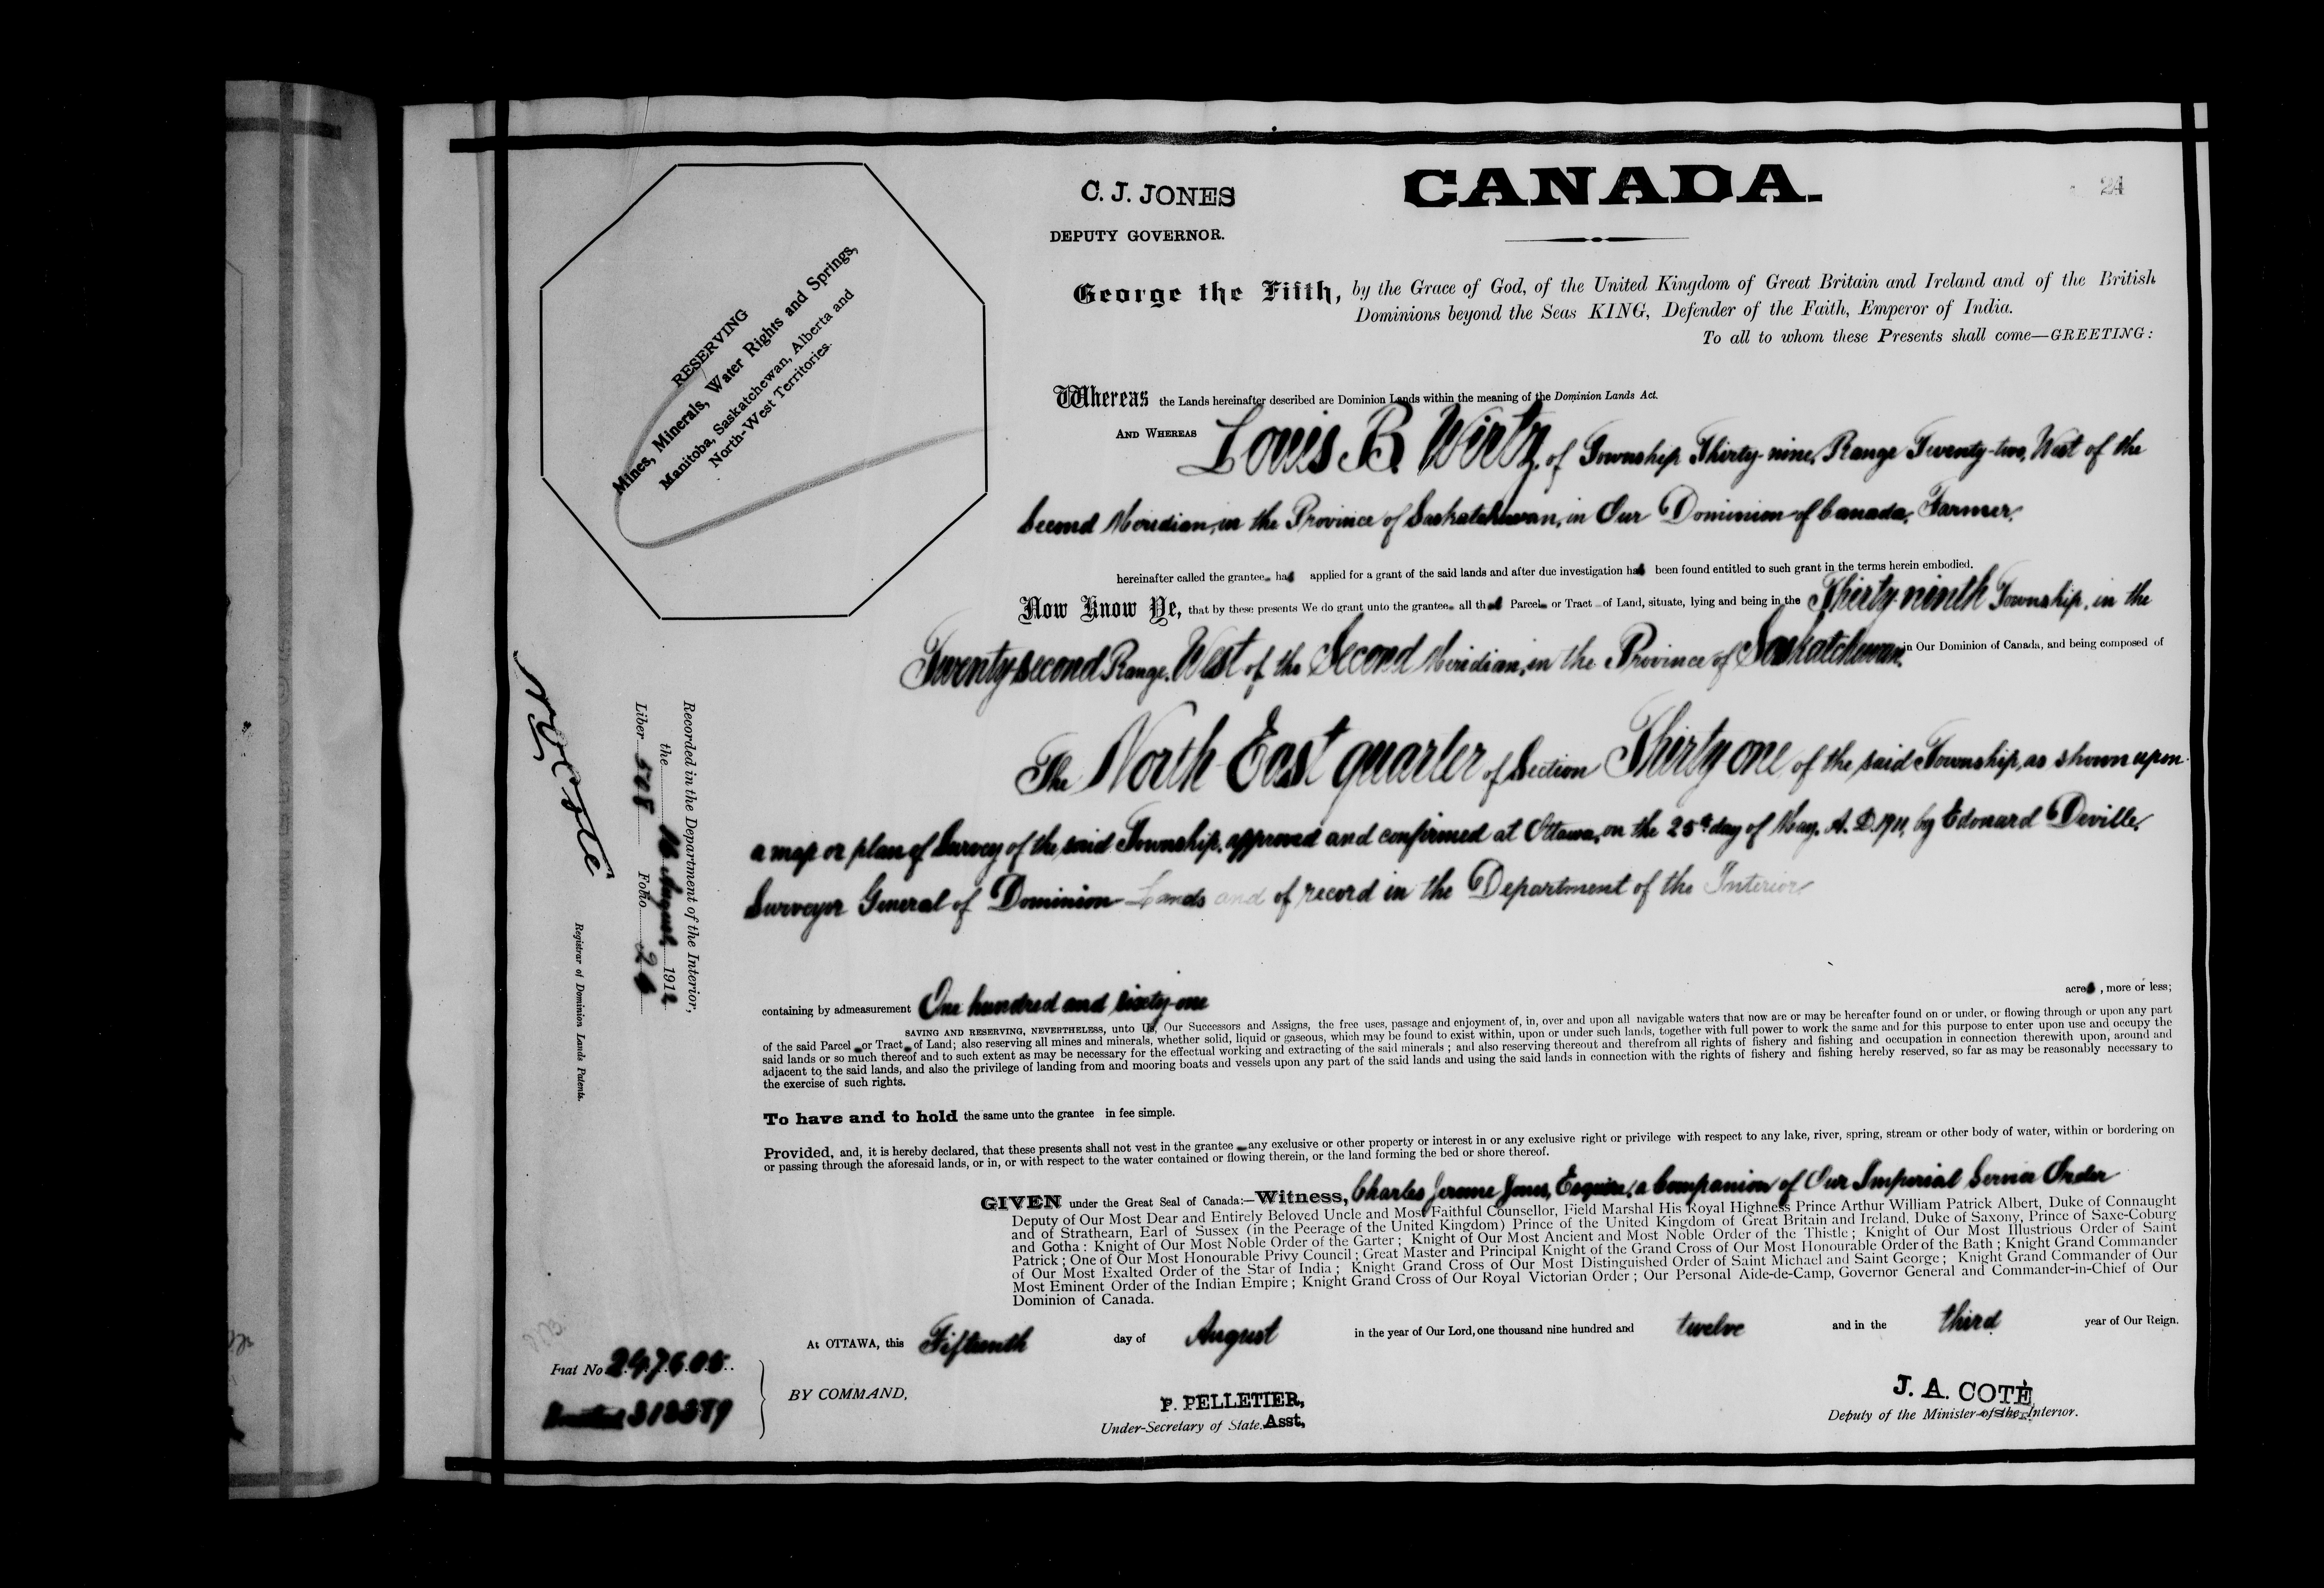 C. J. JONES
DEPUTY GOVERNOR.
CANADA.
24
RESERVING
Mines, Minerals, Water Rights and Springs,
Manitoba, Saskatchewan, Alberta and
North-West Territories.
George the Fifth, by the Grace of God, of the United Kingdom of Great Britain and Ireland and of the British
Dominions beyond the Seas KING, Defender of the Faith, Emperor of India.
To all to whom these Presents shall come—GREETING:
Whereas the Lands hereinafter described are Dominion Lands within the meaning of the Dominion Lands Act.
AND WHEREAS Louis B. Wirtz, of Township Thirty-nine, Range Twenty-two, West of the
Second Meridian, in the Province of Saskatchewan, in Our Dominion of Canada, Farmer,
hereinafter called the grantee has applied for a grant of the said lands and after due investigation has been found entitled to such grant in the terms herein embodied.
Now Know Ye, that by these presents We do grant unto the grantee all that Parcel or Tract of Land, situate, lying and being in the Thirty-ninth Township, in the
Twenty-second Range, West of the Second Meridian, in the Province of Saskatchewan, in Our Dominion of Canada, and being composed of
The North East quarter of Section Thirty one of the said Township, as shown upon
a map or plan of Survey of the said Township, approved and confirmed at Ottawa, on the 25th day of May, A. D. 1911, by Edouard Deville,
Surveyor General of Dominion Lands and of record in the Department of the Interior
containing by admeasurement One hundred and sixty-one acres, more or less;
SAVING AND RESERVING, NEVERTHELESS, unto Us, Our Successors and Assigns, the free uses, passage and enjoyment of, in, over and upon all navigable waters that now are or may be hereafter found on or under, or flowing through or upon any part
of the said Parcel or Tract of Land; also reserving all mines and minerals, whether solid, liquid or gaseous, which may be found to exist within, upon or under such lands, together with full power to work the same and for this purpose to enter upon use and occupy the
said lands or so much thereof and to such extent as may be necessary for the effectual working and extracting of the said minerals; and also reserving thereout and therefrom all rights of fishery and fishing and occupation in connection therewith upon, around and
adjacent to the said lands, and also the privilege of landing from and mooring boats and vessels upon any part of the said lands and using the said lands in connection with the rights of fishery and fishing hereby reserved, so far as may be reasonably necessary to
the exercise of such rights.
To have and to hold the same unto the grantee in fee simple.
Provided, and, it is hereby declared, that these presents shall not vest in the grantee any exclusive or other property or interest in or any exclusive right or privilege with respect to any lake, river, spring, stream or other body of water, within or bordering on
or passing through the aforesaid lands, or in, or with respect to the water contained or flowing therein, or the land forming the bed or shore thereof.
GIVEN under the Great Seal of Canada:—Witness, Charles Jerome Jones, Esquire, a Companion of Our Imperial Service Order
Deputy of Our Most Dear and Entirely Beloved Uncle and Most Faithful Counsellor, Field Marshal His Royal Highness Prince Arthur William Patrick Albert, Duke of Connaught
and of Strathearn, Earl of Sussex (in the Peerage of the United Kingdom) Prince of the United Kingdom of Great Britain and Ireland, Duke of Saxony, Prince of Saxe-Coburg
and Gotha: Knight of Our Most Noble Order of the Garter; Knight of Our Most Ancient and Most Noble Order of the Thistle; Knight of Our Most Illustrious Order of Saint
Patrick; One of Our Most Honourable Privy Council; Great Master and Principal Knight of the Grand Cross of Our Most Honourable Order of the Bath; Knight Grand Commander
of Our Most Exalted Order of the Star of India; Knight Grand Cross of Our Most Distinguished Order of Saint Michael and Saint George; Knight Grand Commander of Our
Most Eminent Order of the Indian Empire; Knight Grand Cross of Our Royal Victorian Order; Our Personal Aide-de-Camp, Governor General and Commander-in-Chief of Our
Dominion of Canada.
At OTTAWA, this Fifteenth day of August in the year of Our Lord, one thousand nine hundred and twelve and in the third year of Our Reign.
BY COMMAND,
P. PELLETIER,
Under-Secretary of State. Asst,
J. A. COTÉ,
Deputy of the Minister of the Interior.
Fiat No 247605
Recorded in the Department of the Interior,
the 16 August 1912
Liber 508 Folio 24
N O Coté
Registrar of Dominion Lands Patents.